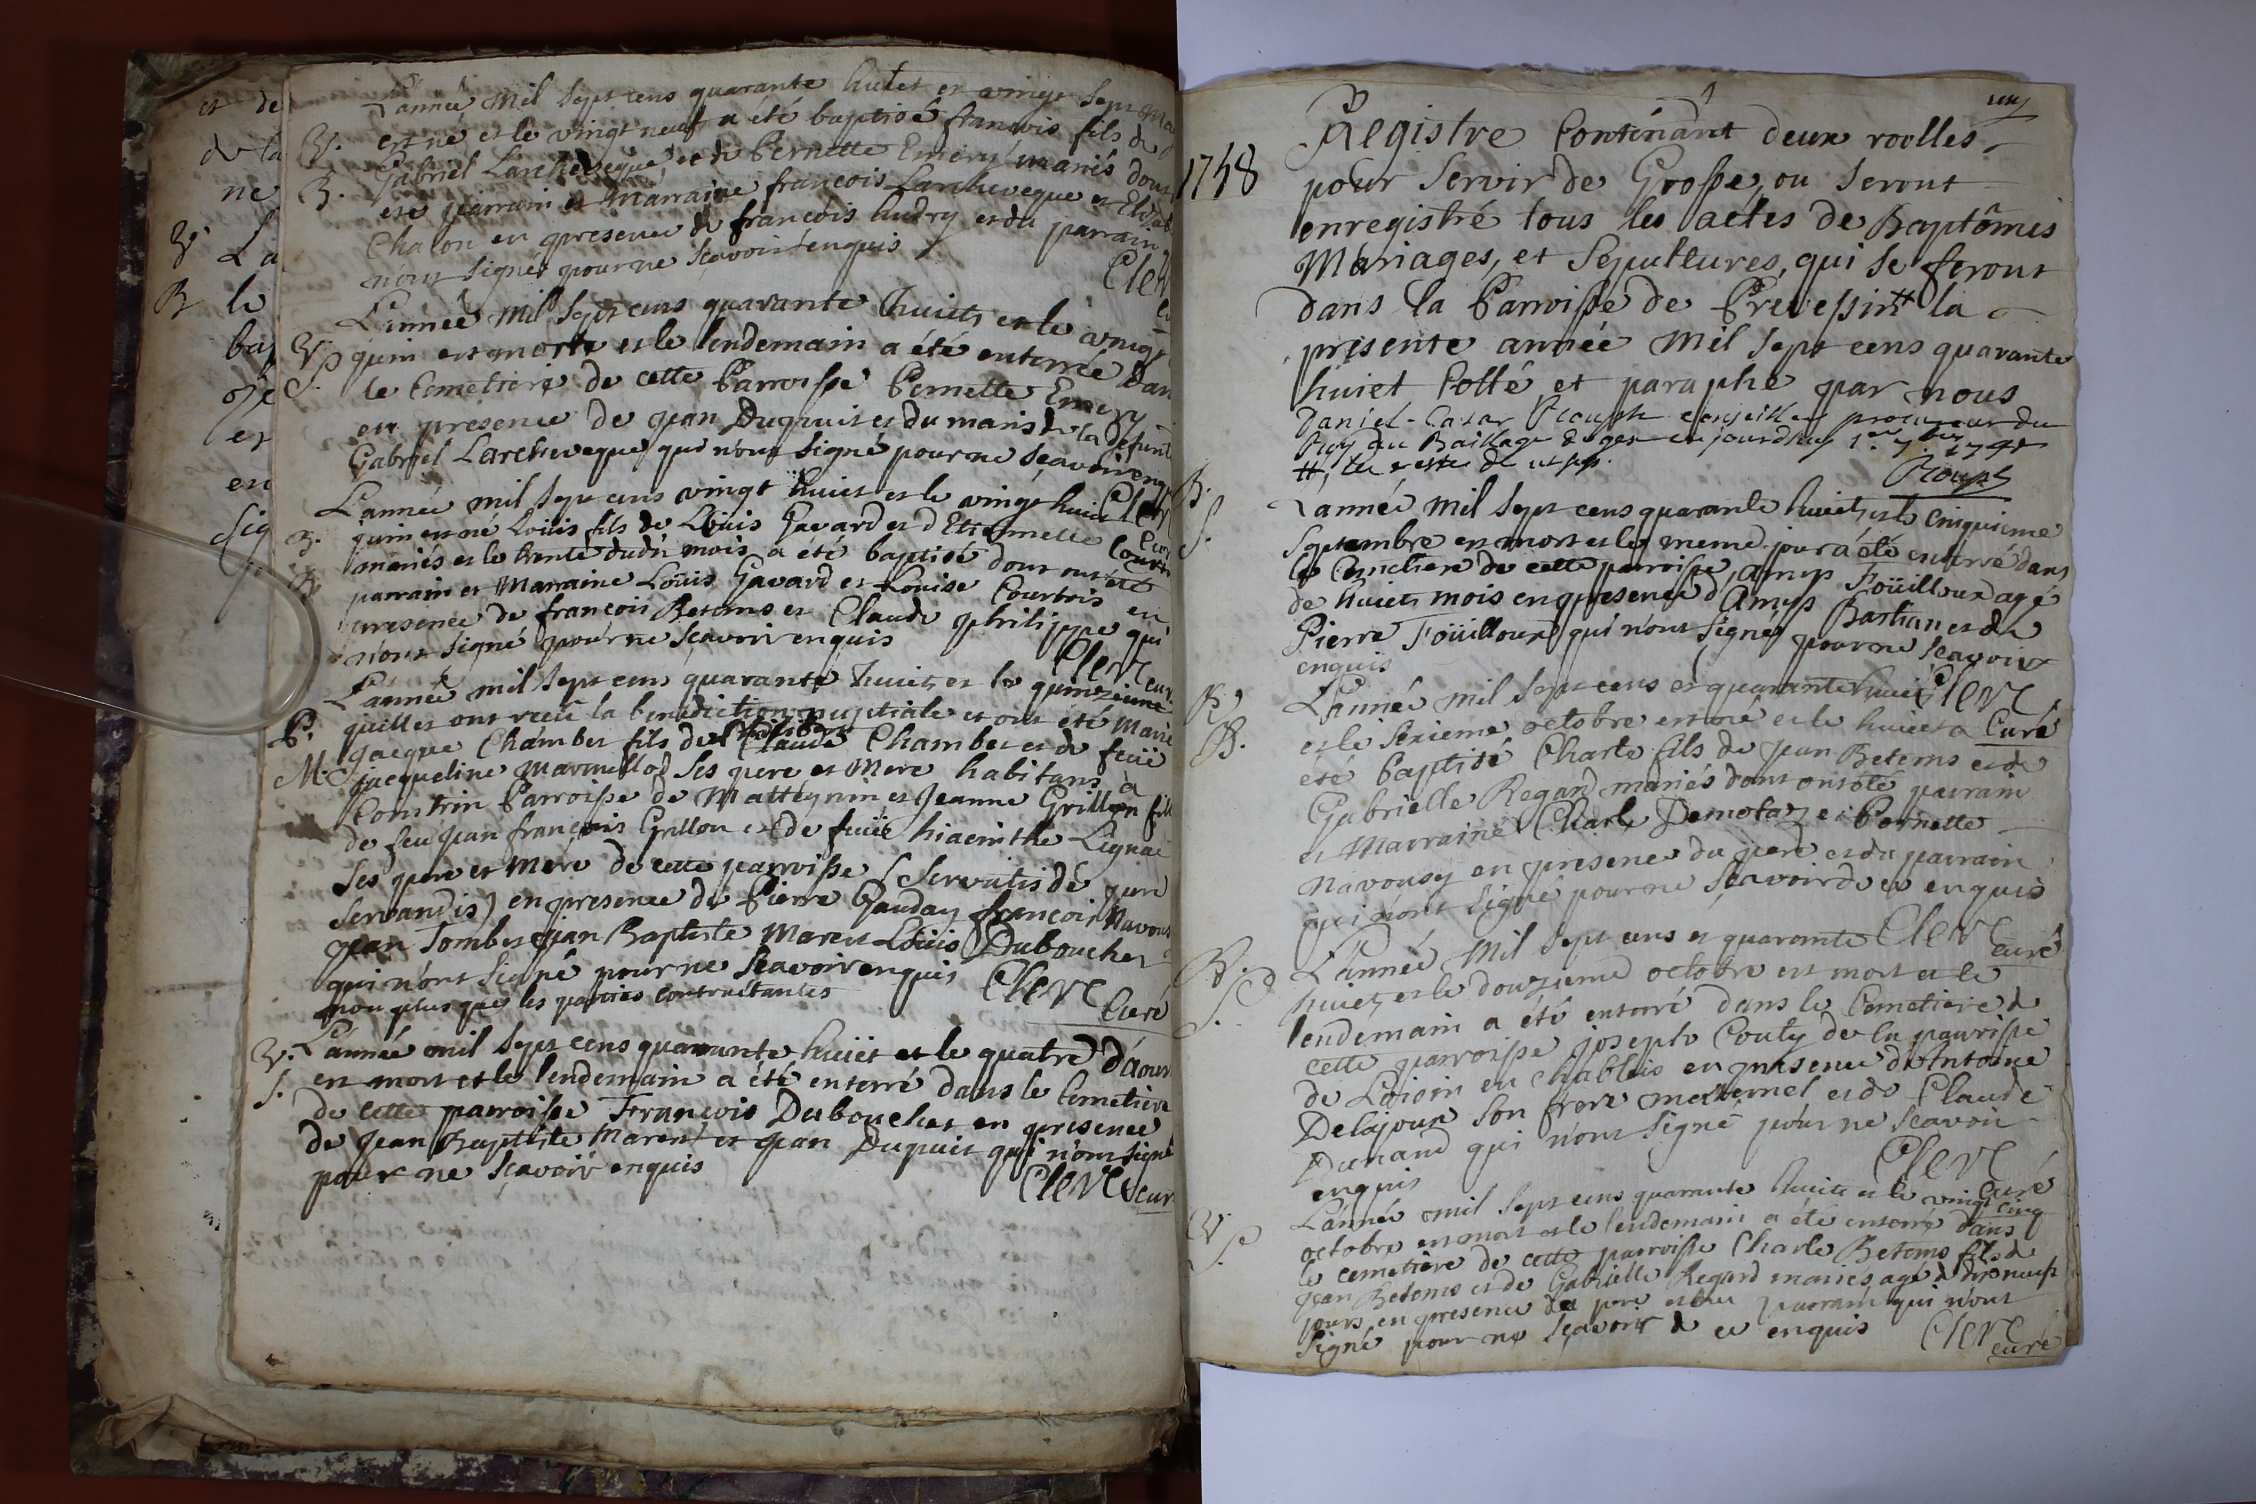 et de
de la
ne
V. La
B le
bap
et
en
sig
L'année mil sept cens quarante huict et vingt sept
V. est né et le vingt neuf a été baptisé francois fils de
B. Gabriel Larcheveque et de Pernette Emery mariés dont
été parrain et Marraine francois Larcheveque et
Chalon en presence de francois Audry et du parrain
n'ont signés pour ne sçavoir enquis
Clerc
L'année mil sept cens quarante huict et le vingt
V. juin est morte et le lendemain a été enterrée dans
S. le Cemetiere de cette Parroisse Pernette Emery
en presence de jean Dupuit et du maris de la defunte
Gabriel Larcheveque qui n'ont signé pour ne sçavoir enquis
Clerc
L'année mil sept cens vingt huict et le vingt huict
B. juin est né Loüis fils de Loüis Gavard et d'Etiennette
mariés et le trente dudit mois a été baptisé dont ont été
parrain et Marraine Loüis Gavard et Loüise Courtois en
presence de francois Betems et Claude philippe qui
n'ont signé pour ne sçavoir enquis
Clerc curé
L'année mil sept cens quarante huict et le quinzieme
P. juillet ont receu la benediction nuptiale et ont été Marié
M. jacque Chambet fils de Claude Chambet et de feüe
jacqueline Marmillod ses pere et Mere habitans à
Constrin Parroisse de Matteynin et Jeanne Grillon fille
de feu jean françois Grillon et de feüe hiacinthe Lignac
ses pere et Mere de cette parroisse (servatis de jure
servandis) en presence de Pierre Gauday francois Navoux
jean Tombet jean Baptiste Maret Loüis Dubouchet
qui n'ont signé pour ne sçavoir enquis
non plus que les parties contractantes
Clerc Curé
V. L'année mil sept cens quarante huict et le quatre d'aout
S. est mort et le lendemain a été enterré dans le Cemetiere
de cette parroisse François Dubouchet en presence
de jean Baptiste Maret et jean Dupuit qui n'ont signé
pour ne sçavoir enquis
Clerc cur
1748
Registre Contenant deux roolles
pour servir de Grosse, ou seront
enregistré tous les actes de Baptêmes
Mariages, et Sepultures, qui se feront
dans la Parroisse de Prevessin # la
presente année mil sept cens quarante
huict Cotté et paraphé par nous
Daniel-Cazar Rouph conseiller procureur du
Roy au Baillage de gex ce jourdhuy 1er 7bre 1748
Rouph
L'année mil sept cens quarante huict et le cinquieme
S. Septembre est mort et le meme jour a été enterré dans
le Cemetiere de cette parroisse, Amys Foüilloux agé
de huict mois en presence d'Amys Bastian et de
Pierre Foüilloux qui n'ont signés pour ne sçavoir
enquis
Clerc Curé
L'année mil sept cens et quarante huict
B. et le sixieme octobre est né et le huict a
été baptisé Charle fils de jean Betems et de
Gabrielle Regard mariés dont ont été parrain
et Marraine Charle Demotaz et Pernette
Navousy en presence du pere et du parrain
qui n'ont signé pour ne sçavoir de ce enquis
Clerc curé
L'année mil sept cens et quarante
huict et le douzieme octobre est mort et le
S. lendemain a été enterré dans le Cemetiere de
cette parroisse joseph Couty de la parroisse
de Loisin en Chablais en presence de Antoine
Delajoux son frere maternel et de Claude
Dunand qui n'ont signé pour ne sçavoir
enquis
Clerc curé
V. L'année mil sept cens quarante huict et le vingt cinq
S. octobre est mort et le lendemain a été enterré dans
le cemetiere de cette parroisse Charle Betems fils de
jean Betems et de Gabrielle Regard mariés agé de dixneuf
jours en presence du pere et du parrain qui n'ont
signé pour ne sçavoir de ce enquis
Clerc curé